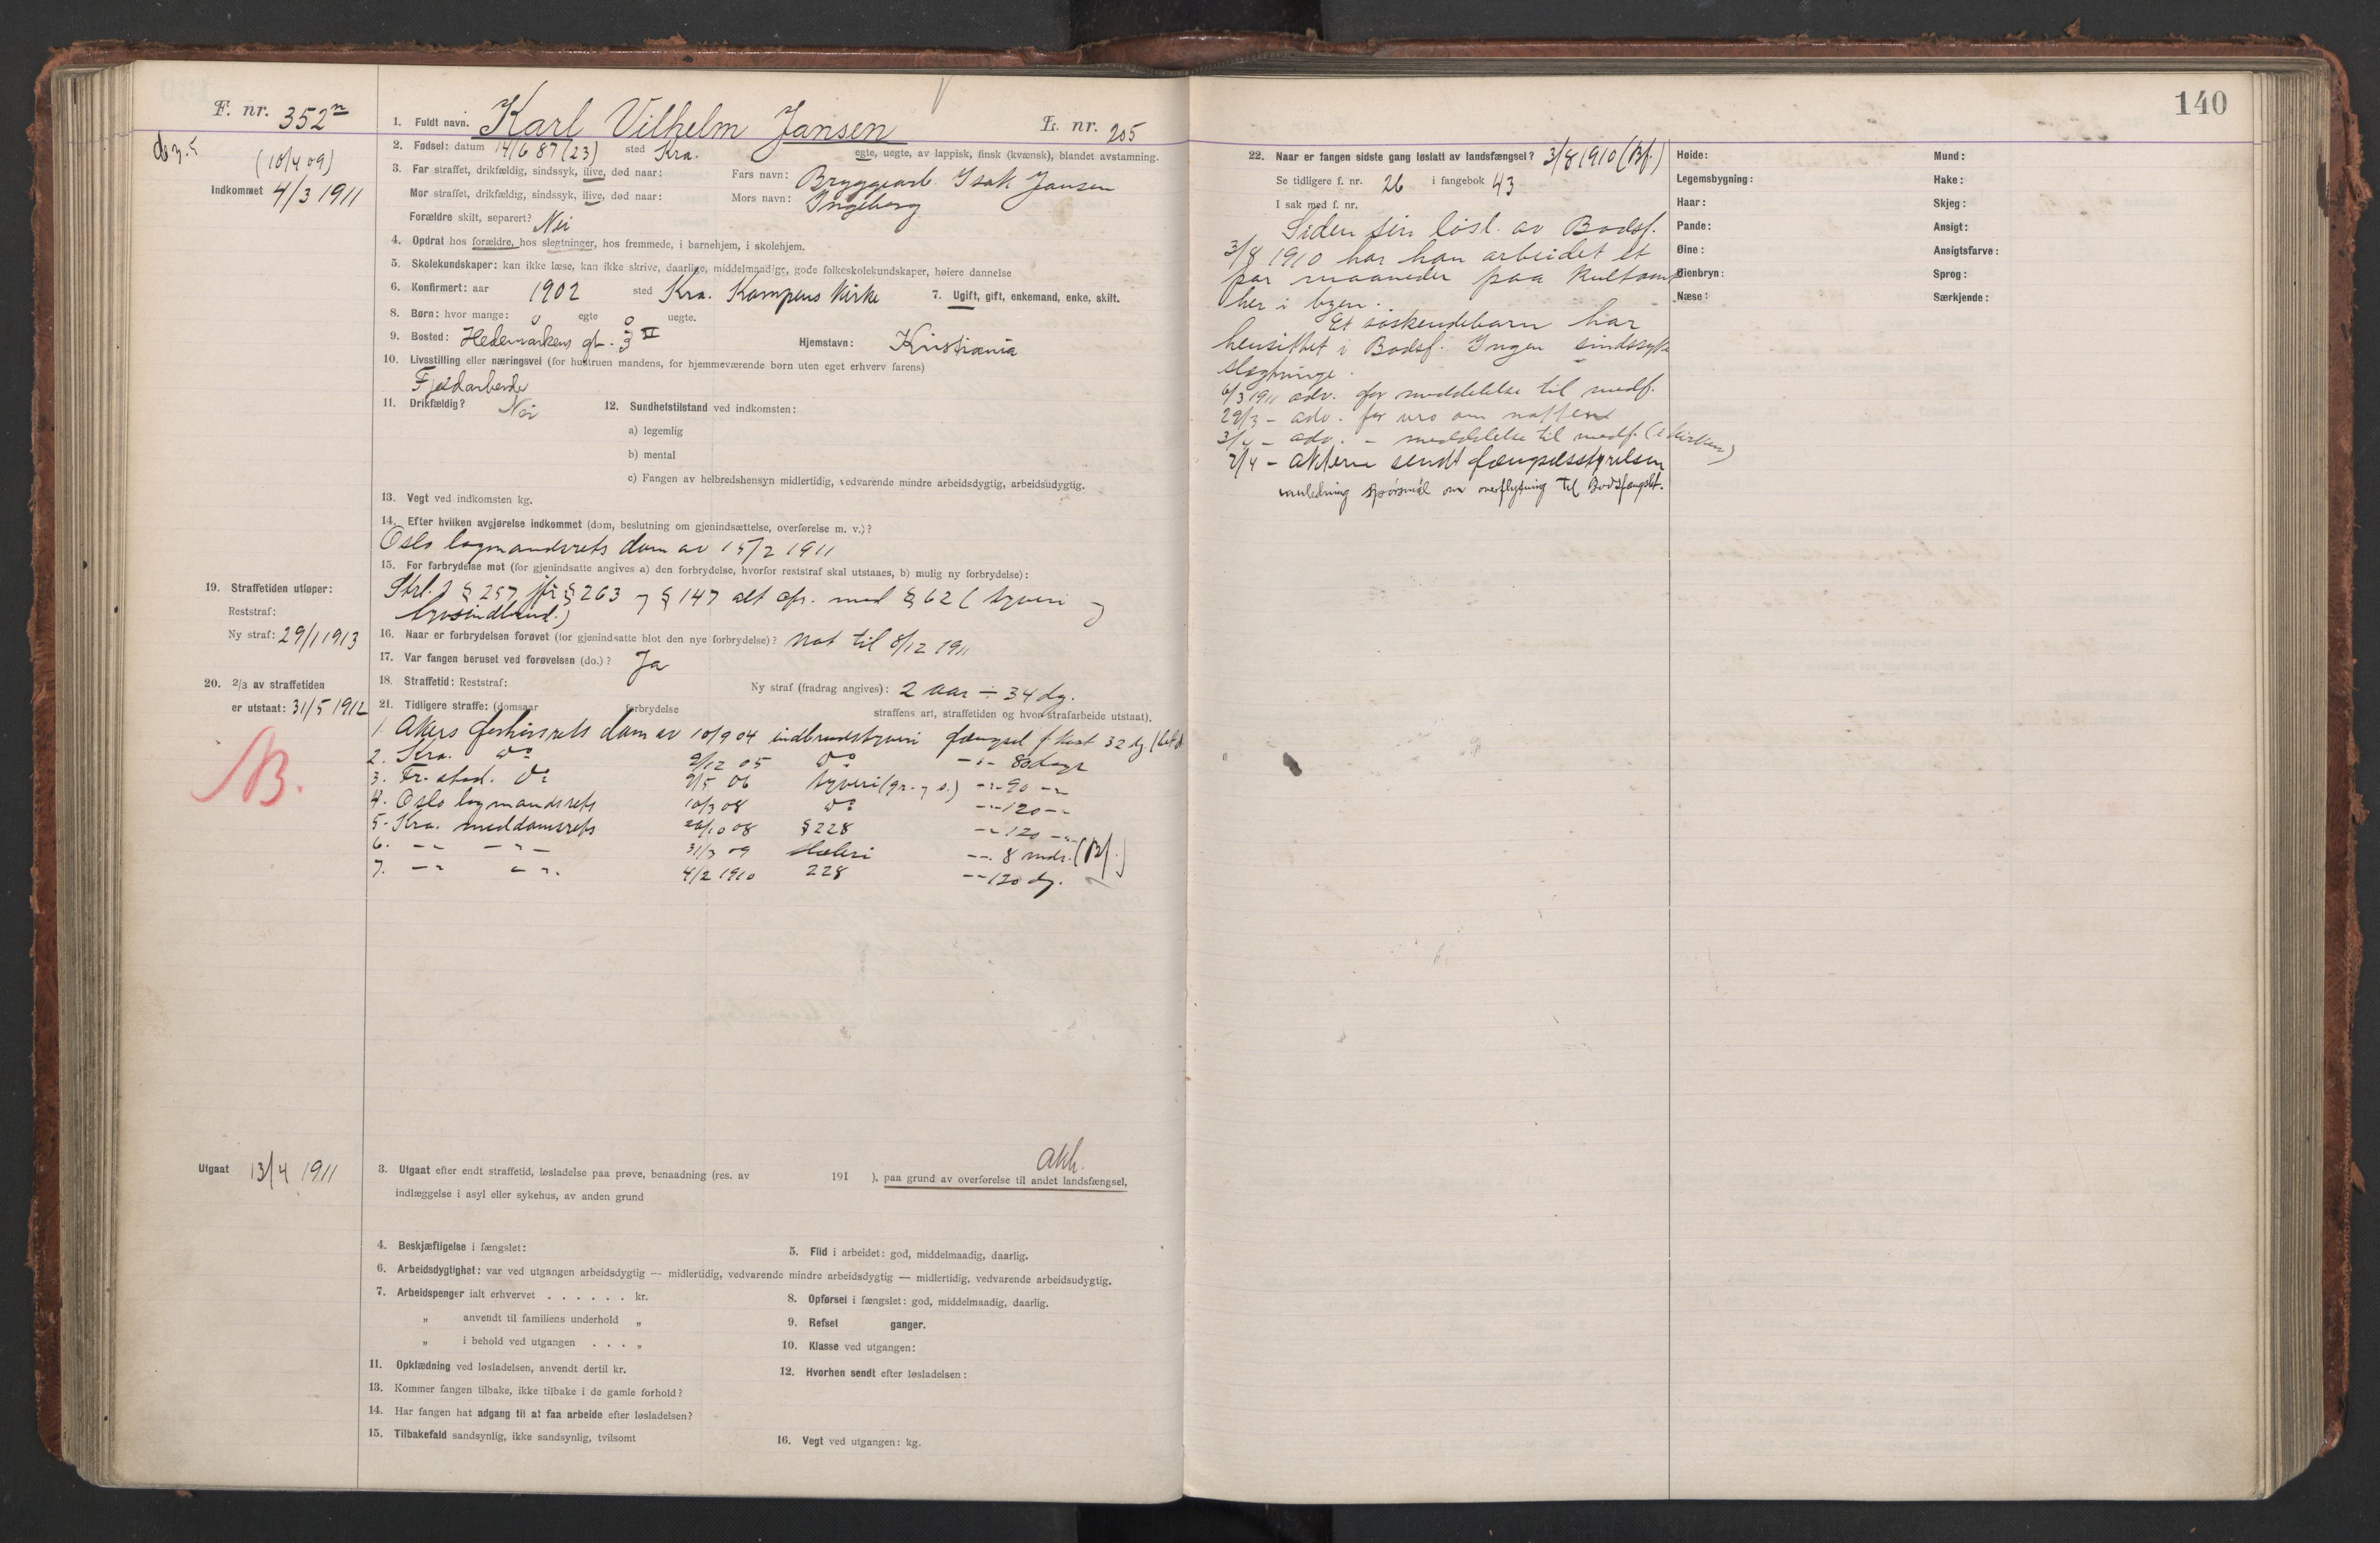 F. nr. 352
(10/4 09)
Indkommet 4/3 1911
1. Fuldt navn. Karl Vilhelm Jansen L. nr. 205
2. Fødsel: datum 14/6 87 (23) sted Kra. egte, uegte, av lappisk, finsk (kvænsk), blandet avstamning.
3. Far straffet, drikfældig, sindssyk, ilive, død naar: Fars navn: Bryggearb. Isak Jansen
Mor straffet, drikfældig, sindssyk, ilive, død naar: Mors navn: Ingeborg
Forældre skilt, separert? Nei
4. Opdrat hos forældre, hos slegtninger, hos fremmede, i barnehjem, i skolehjem.
5. Skolekundskaper: kan ikke læse, kan ikke skrive, daarlige, middelmaadige, gode folkeskolekundskaper, høiere dannelse
6. Konfirmert: aar 1902 sted Kra. Kampens Kirke 7. Ugift, gift, enkemand, enke, skilt.
8. Børn: hvor mange: 0 egte 0 uegte.
9. Bosted: Hedemarkens gt. 3 II Hjemstavn: Kristiania
10. Livsstilling eller næringsvei (for hustruen mandens, for hjemmeværende børn uten eget erhverv farens)
Fjeldarbeider
11. Drikfældig? Nei 12. Sundhetstilstand ved indkomsten:
a) legemlig
b) mental
c) Fangen av helbredshensyn midlertidig, vedvarende mindre arbeidsdygtig, arbeidsudygtig.
13. Vegt ved indkomsten kg.
14. Efter hvilken avgjørelse indkommet (dom, beslutning om gjenindsættelse, overførelse m. v.)?
Oslo lagmandsrets dom av 15/2 1911
15. For forbrydelse mot (for gjenindsatte angives a) den forbrydelse, hvorfor reststraf skal utstaaes, b) mulig ny forbrydelse):
Strl. § 257 jfr § 263 og § 147 alt cfr. med § 62 (tyveri og
19. Straffetiden utløper:
Reststraf:
Ny straf: 29/1 1913
16. Naar er forbrydelsen forøvet (for gjenindsatte blot den nye forbrydelse)? nat til 8/12 1911
17. Var fangen beruset ved forøvelsen (do.)? Ja
18. Straffetid: Reststraf: Ny straf (fradrag angives): 2 aar ÷ 34 dg.
20. 2/3 av straffetiden
er utstaat: 31/5 1912
21. Tidligere straffe: (domsaar forbrydelse straffens art, straffetiden og hvor strafarbeide utstaat).
B.
1. Akers forhørsrets dom av 10/9 04 indbrudstyveri fængsel f. kost 32 dg.
2. Kra. do 9/12 05 do -"- 80 dage
3. Fr.stad. do 9/5 06 tyveri (gr. og s.) -"- 90 -"-
4. Oslo lagmandsrets 10/3 08 do -"- 120 -"-
5. Kra. meddomsrets 26/10 08 § 228 -"- 120 -"-
6. -"- -"- 31/3 09 Hæleri -"- 8 mdr. (Bf.)
7. -"- -"- 4/2 1910 228 -"- 120 dg.
Utgaat 13/4 1911
Akh.
3. Utgaat efter endt straffetid, løsladelse paa prøve, benaadning (res. av 191 ), paa grund av overførelse til andet landsfængsel,
indlæggelse i asyl eller sykehus, av anden grund
4. Beskjæftigelse i fængslet: 5. Flid i arbeidet: god, middelmaadig, daarlig.
6. Arbeidsdygtighet: var ved utgangen arbeidsdygtig — midlertidig, vedvarende mindre arbeidsdygtig — midlertidig, vedvarende arbeidsudygtig.
7. Arbeidspenger ialt erhvervet . . . . . . kr. 8. Opførsel i fængslet: god, middelmaadig, daarlig.
„ anvendt til familiens underhold „ 9. Refset ganger.
„ i behold ved utgangen . . . „ 10. Klasse ved utgangen:
11. Opklædning ved løsladelsen, anvendt dertil kr. 12. Hvorhen sendt efter løsladelsen:
13. Kommer fangen tilbake, ikke tilbake i de gamle forhold?
14. Har fangen hat adgang til at faa arbeide efter løsladelsen?
15. Tilbakefald sandsynlig, ikke sandsynlig, tvilsomt 16. Vegt ved utgangen: kg.
140
22. Naar er fangen sidste gang løslatt av landsfængsel? 3/8 1910 (Bf.)
Se tidligere f. nr. 26 i fangebok 43
I sak med f. nr.
Siden sin løsl. av Bodsf.
3/8 1910 har han arbeidet et
par maaneder paa
her i byen.
Et søskendebarn har
hensittet i Bodsf. Ingen sindssyke
slegtninge.
6/3 1911 adv. for meddelelse til medf.
29/3 - adv. for uro om natten
3/4 - adv. - meddelelse til medf. (i kirken)
7/4 - Akterne sendt fængselsstyrelsen
i anledning spørsmål om overflytning til Bodsfængslet.
Høide: Mund:
Legemsbygning: Hake:
Haar: Skjeg:
Pande: Ansigt:
Øine: Ansigtsfarve:
Øienbryn: Sprog:
Næse: Særkjende: